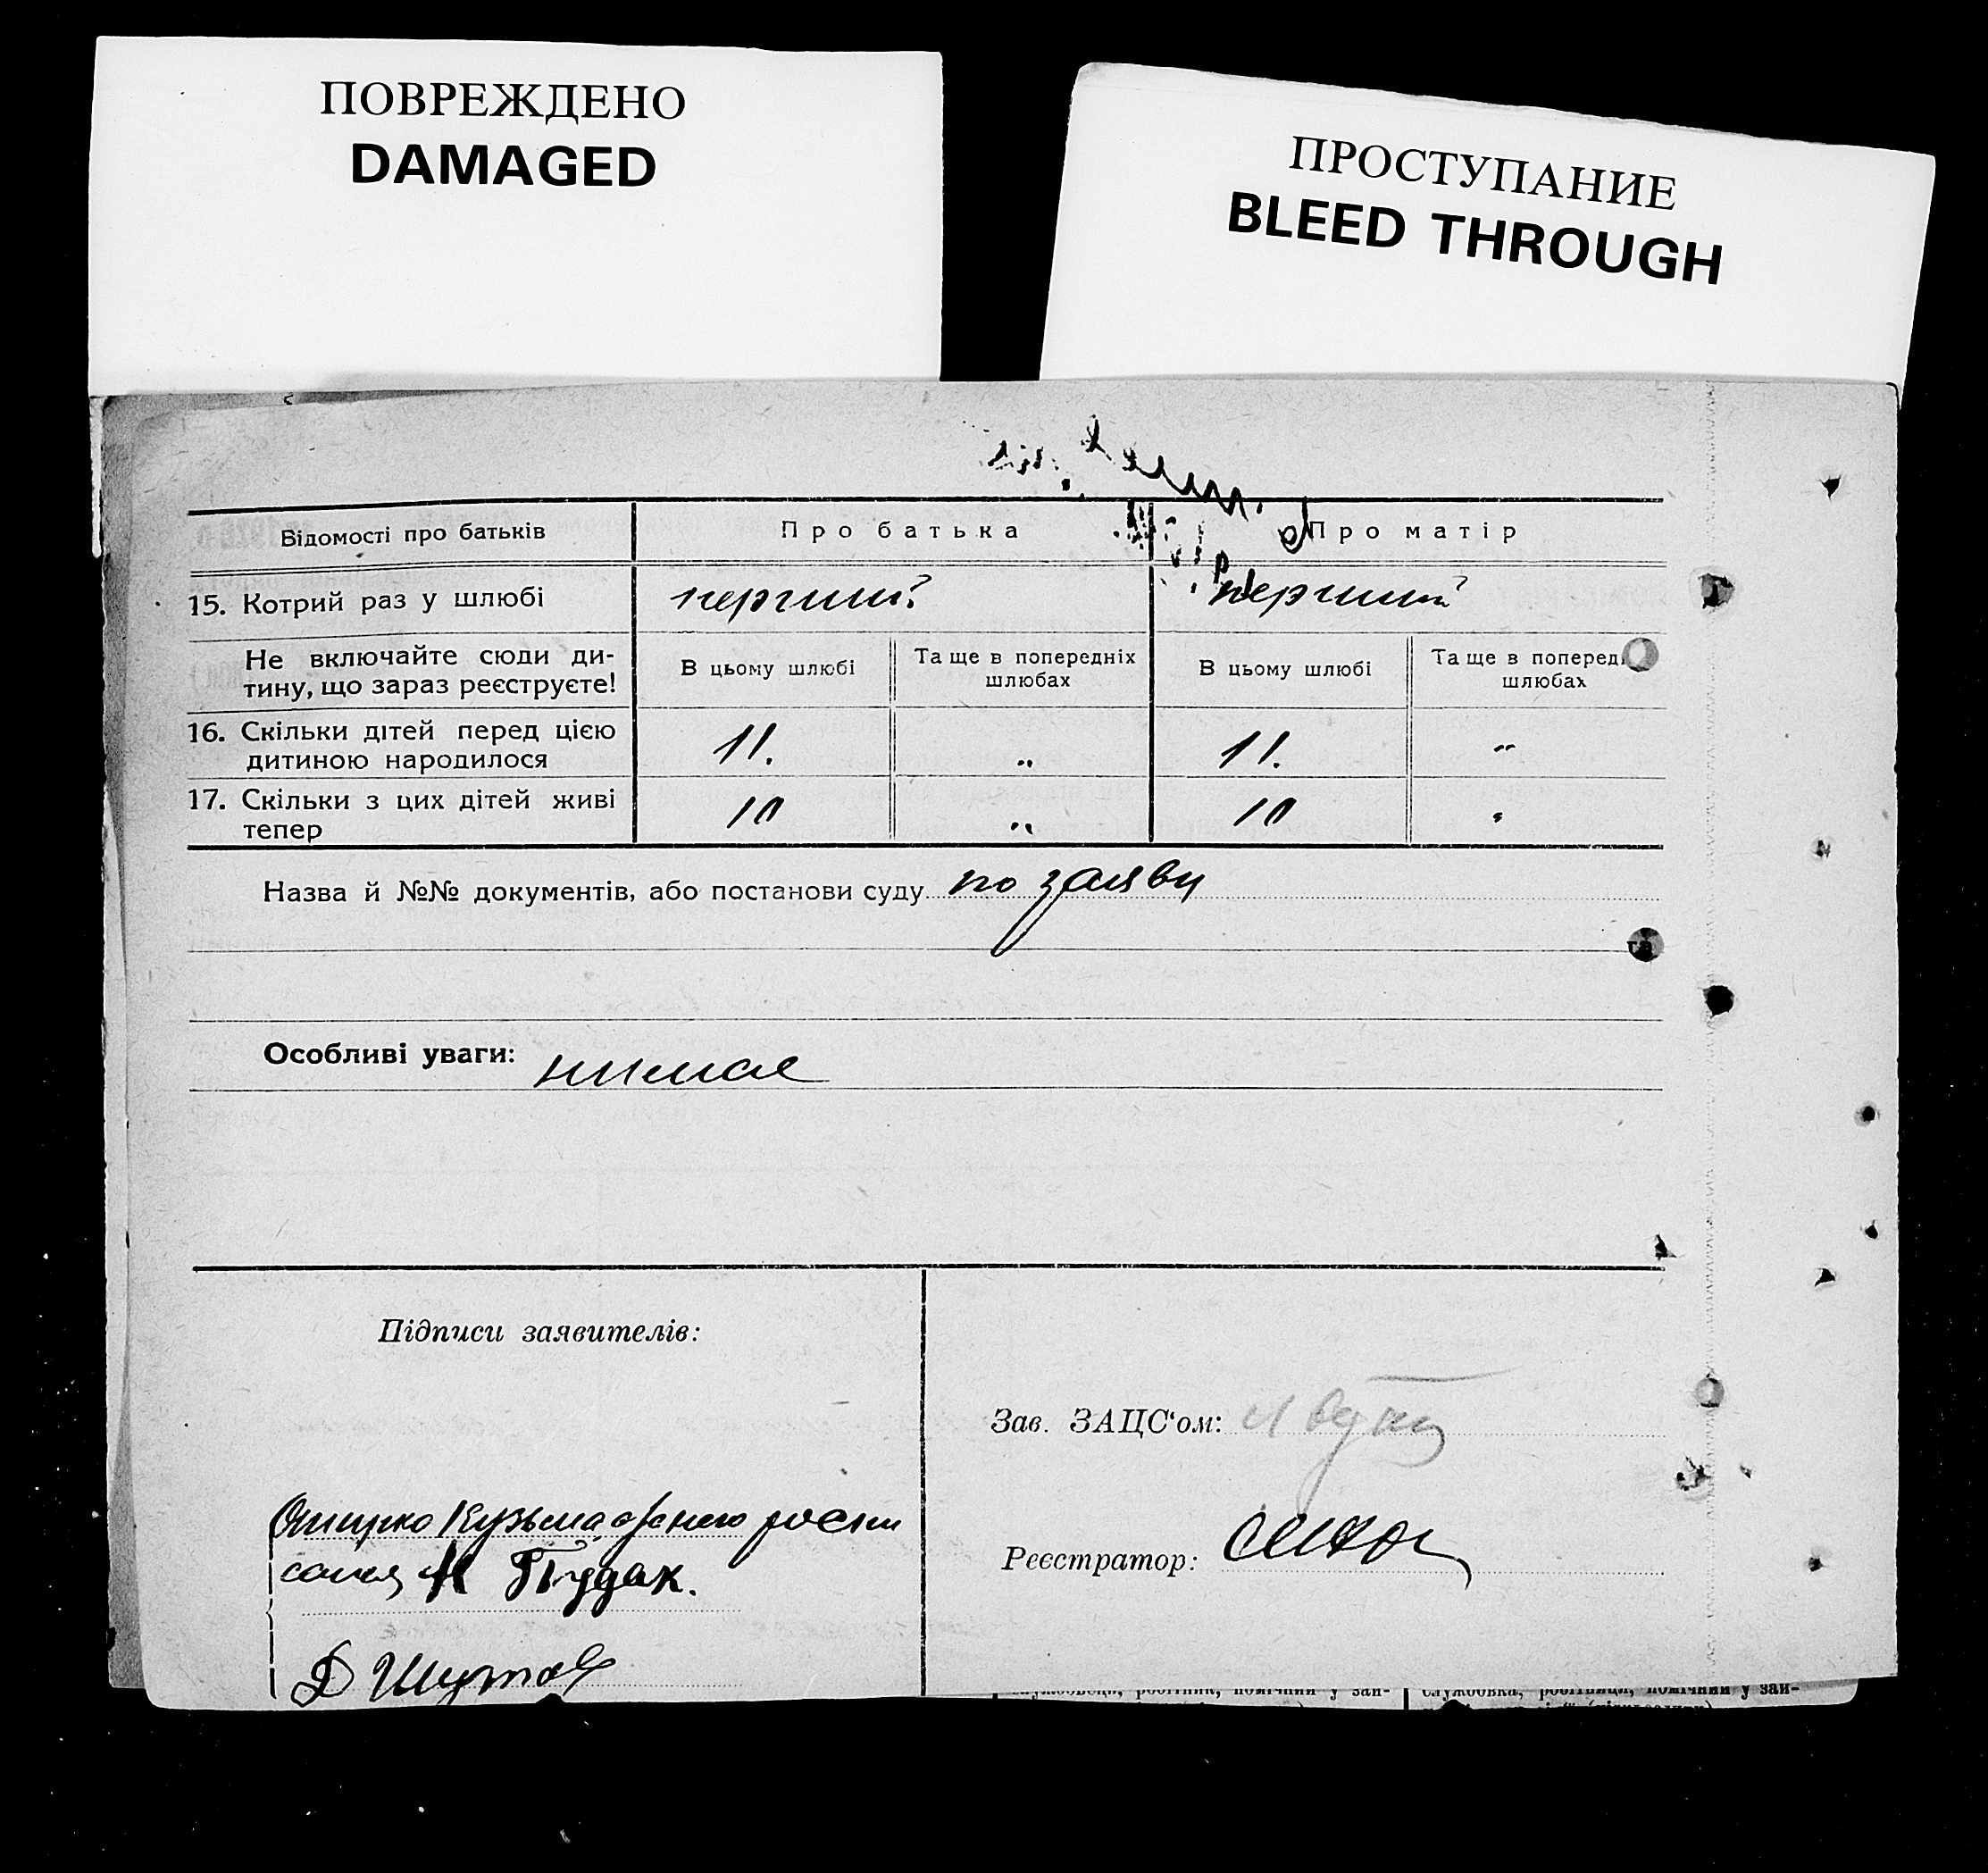 ПОВРЕЖДЕНО
DAMAGED
ПРОСТУПАНИЕ
BLEED THROUGH
Відомості про батьків
Про батька
Про матір
15. Котрий раз у шлюбі
перший
перший
Не включайте сюди ди-
тину, що зараз реєструєте!
В цьому шлюбі
Та ще в попередніх
шлюбах
В цьому шлюбі
Та ще в поперед
шлюбах
16. Скільки дітей перед цією
дитиною народилося
11.
„
11.
„
17. Скільки з цих дітей живі
тепер
10
„
10
Назва й №№ документів, або постанови суду по заяви
та
Особливі уваги: нимає
Підписи заявителів:
Зав. ЗАЦС‘ом:
Кузьма
Реєстратор:
Д Шутов
службовець, робітник, помічний у зай-
службовка, робітниця, помічний у зай-